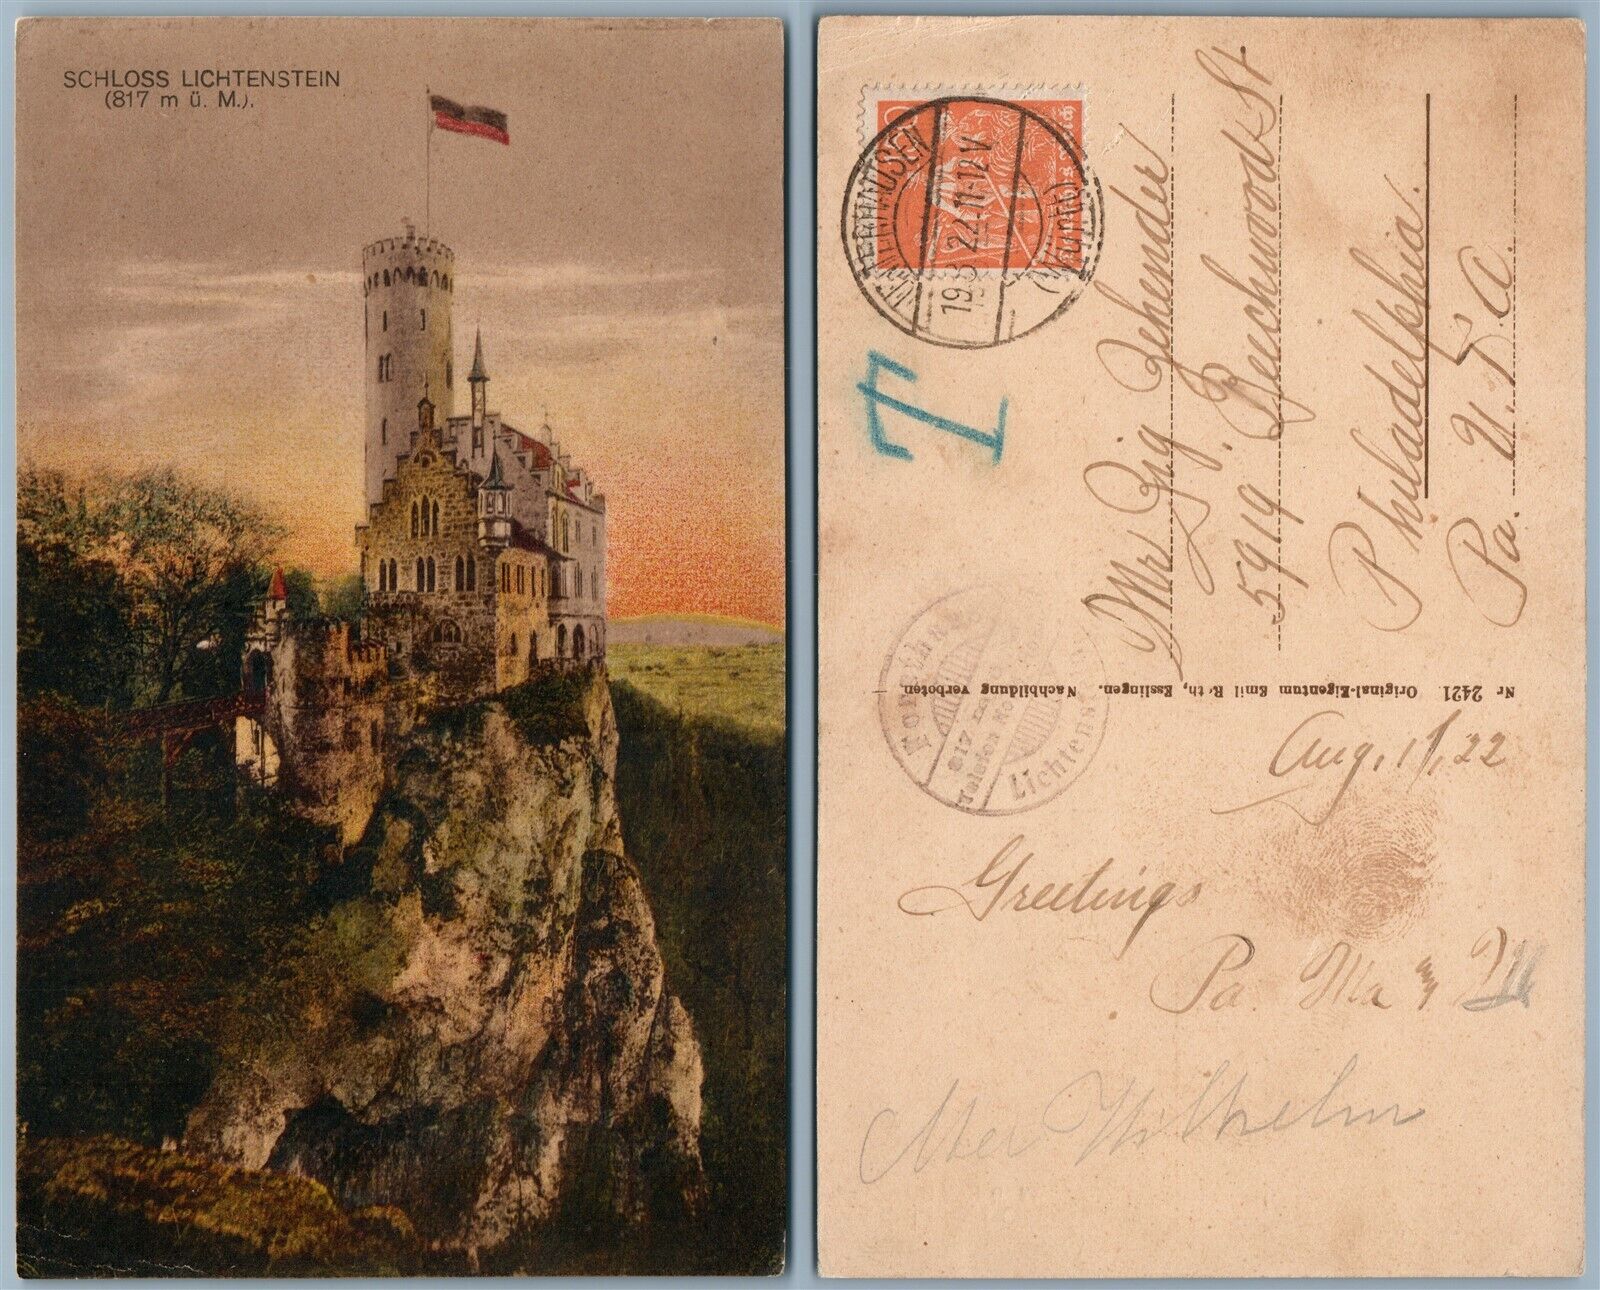 SCHLOSS LICHTENSTEIN
(817 m ü. M.).
UNTERHAUSEN
19.8.22.11-12 V
(Württb)
T
Mr Gig Zehender
5919 Beechwood St
Philadelphia.
Pa. U.S.A.
Nr 2421 Original-Eigentum Emil R th, Esslingen. Nachbildung verboten.
817
Telefon No
Lichtenst
Aug. 11, 22
Greetings
Pa Ma
Wilhelm